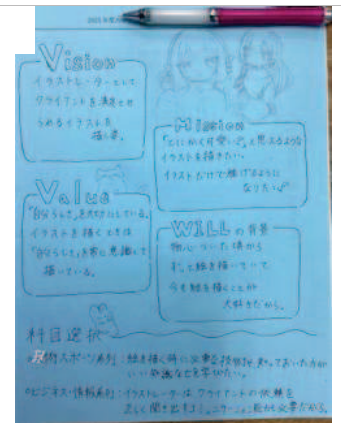 2023年度
Vision
イラストレーターとして
クライアントを満足させ
られるイラストを
描く事。
Mission
「とにかく可愛い♡」と思えるような
イラストを描きたい。
イラストだけで稼げるように
なりたい
Value
"自分らしさ"を大切にしている。
イラストを描くときは
"自分らしさ"を常に意識して
描いている。
WILLの背景
物心ついた頃から
ずっと絵を描いていて
今も絵を描くことが
大好きだから。
科目選択
スポーツ系列:絵を描く時に必要な技術や、知っておいた方が
いい知識などを学びたい。
ビジネス・情報系列:イラストレーターは、クライアントの依頼を
正しく聞き出すコミュニケーション能力が必要だから。